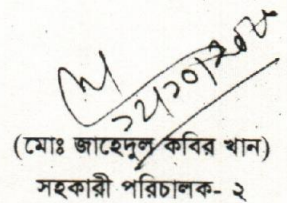 (মোঃ জাহেদুল কবির খান)
সহকারী পরিচালক- ২